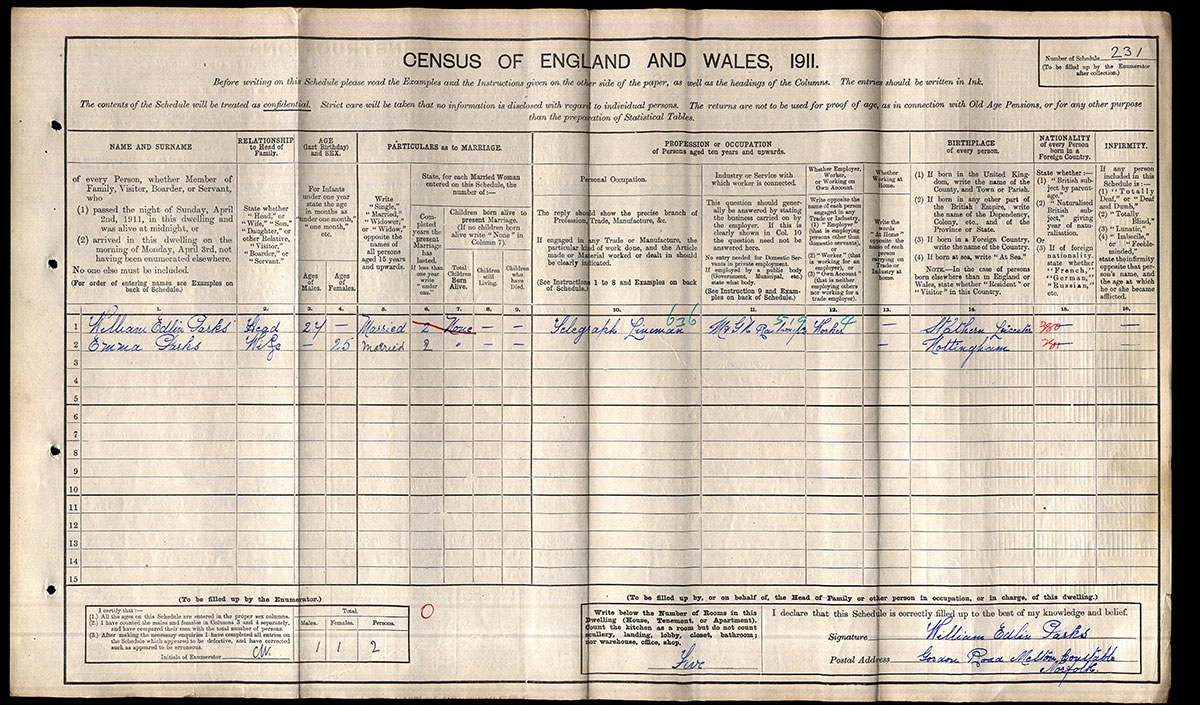 CENSUS OF ENGLAND AND WALES, 1911.
Number of Schedule 231
(To be filled up by the Enumerator
after collection.)
Before writing on this Schedule please read the Examples and the Instructions given on the other side of the paper, as well as the headings of the Columns. The entries should be written in Ink.
The contents of the Schedule will be treated as confidential. Strict care will be taken that no information is disclosed with regard to individual persons. The returns are not to be used for proof of age, as in connection with Old Age Pensions, or for any other purpose
than the preparation of Statistical Tables.
NAME AND SURNAME
of every Person, whether Member of
Family, Visitor, Boarder, or Servant,
who
(1) passed the night of Sunday, April
2nd, 1911, in this dwelling and
was alive at midnight, or
(2) arrived in this dwelling on the
morning of Monday, April 3rd, not
having been enumerated elsewhere.
No one else must be included.
(For order of entering names see Examples on
back of Schedule.)
RELATIONSHIP
to Head of
Family.
State whether
"Head," or
"Wife," "Son,"
"Daughter," or
other Relative,
"Visitor,"
"Boarder," or
"Servant."
AGE
(last Birthday)
and SEX.
For Infants
under one year
state the age
in months as
"under one month,"
"one month,"
etc.
Ages
of
Males.
Ages
of
Females.
PARTICULARS as to MARRIAGE.
Write
"Single,"
"Married,"
"Widower,"
or "Widow,"
opposite the
names of
all persons
aged 15 years
and upwards.
State, for each Married Woman
entered on this Schedule, the
number of:—
Completed
years the
present
Marriage
has
lasted.
If less than
one year
write
"under
one."
Children born alive to
present Marriage.
(If no children born
alive write "None" in
Column 7).
Total
Children
Born
Alive.
Children
still
Living.
Children
who
have
Died.
PROFESSION or OCCUPATION
of Persons aged ten years and upwards.
Personal Occupation.
The reply should show the precise branch of
Profession, Trade, Manufacture, &c.
If engaged in any Trade or Manufacture, the
particular kind of work done, and the Article
made or Material worked or dealt in should
be clearly indicated.
(See Instructions 1 to 8 and Examples on back
of Schedule.)
Industry or Service with
which worker is connected.
This question should generally
be answered by stating
the business carried on by
the employer. If this is
clearly shown in Col. 10
the question need not be
answered here.
No entry needed for Domestic Servants
in private employment.
If employed by a public body
(Government, Municipal, etc.)
state what body.
(See Instruction 9 and Examples
on back of Schedule.)
Whether Employer,
Worker,
or Working on
Own Account.
Write opposite the
name of each person
engaged in any
Trade or Industry,
(1) "Employer"
(that is employing
persons other than
domestic servants),
or
(2) "Worker" (that
is working for an
employer), or
(3) "Own Account"
(that is neither
employing others nor
working for a trade
employer).
Whether
Working at
Home.
Write the
words
"At Home"
opposite the
name of each
person
carrying on
Trade or
Industry at
home.
BIRTHPLACE
of every person.
(1) If born in the United Kingdom,
write the name of the
County, and Town or Parish.
(2) If born in any other part of
the British Empire, write the
name of the Dependency,
Colony, etc., and of the
Province or State.
(3) If born in a Foreign Country,
write the name of the Country.
(4) If born at sea, write "At Sea."
NOTE.—In the case of persons
born elsewhere than in England or
Wales, state whether "Resident" or
"Visitor" in this Country.
NATIONALITY
of every Person
born in a
Foreign Country.
State whether:—
(1) "British subject
by parentage."
(2) "Naturalised
British subject,"
giving
year of naturalisation.
Or
(3) If of foreign
nationality,
state whether
"French,"
"German,"
"Russian,"
etc.
INFIRMITY.
If any person
included in this
Schedule is:—
(1) "Totally
Deaf," or "Deaf
and Dumb,"
(2) "Totally
Blind,"
(3) "Lunatic,"
(4) "Imbecile,"
or "Feeble-minded,"
state the infirmity
opposite that person's
name, and
the age at which
he or she became
afflicted.
1. 2. 3. 4. 5. 6. 7. 8. 9. 10. 11. 12. 13. 14. 15. 16.
1 William Edlin Parks Head 27 — Married 2 None — — Telegraph Lineman 636 M & G N Railway Co 519 Worker 4 — Hathern Leicester —
2 Emma Parks Wife — 25 Married 2 " — — — Nottingham —
3
4
5
6
7
8
9
10
11
12
13
14
15
(To be filled up by the Enumerator.)
I certify that:—
(1.) All the ages on this Schedule are entered in the proper sex columns.
(2.) I have counted the males and females in Columns 3 and 4 separately,
and have compared their sum with the total number of persons.
(3.) After making the necessary enquiries I have completed all entries on
the Schedule which appeared to be defective, and have corrected
such as appeared to be erroneous.
Initials of Enumerator
Total.
Males. Females. Persons.
1 1 2
0
(To be filled up by, or on behalf of, the Head of Family or other person in occupation, or in charge, of this dwelling.)
Write below the Number of Rooms in this
Dwelling (House, Tenement, or Apartment).
Count the kitchen as a room but do not count
scullery, landing, lobby, closet, bathroom;
nor warehouse, office, shop.
Five
I declare that this Schedule is correctly filled up to the best of my knowledge and belief.
Signature William Edlin Parks
Postal Address Gordon Road Melton Constable
Norfolk.